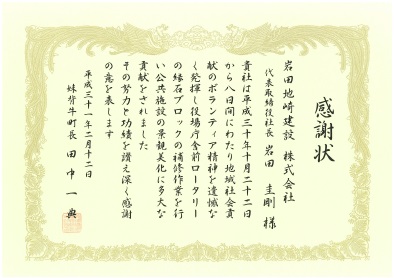 感謝状
岩田地崎建設 株式会社
代表取締役社長 岩田 圭剛 様
貴社は平成三十年十月二十二日
から八日間にわたり地域社会貢
献のボランティア精神を遺憾な
く発揮し役場庁舎前ロータリー
の縁石ブロックの補修作業を行
い公共施設の景観美化に多大な
貢献をされました
その努力と功績を讃え深く感謝
の意を表します
平成三十一年二月十二日
妹背牛町長 田中一典